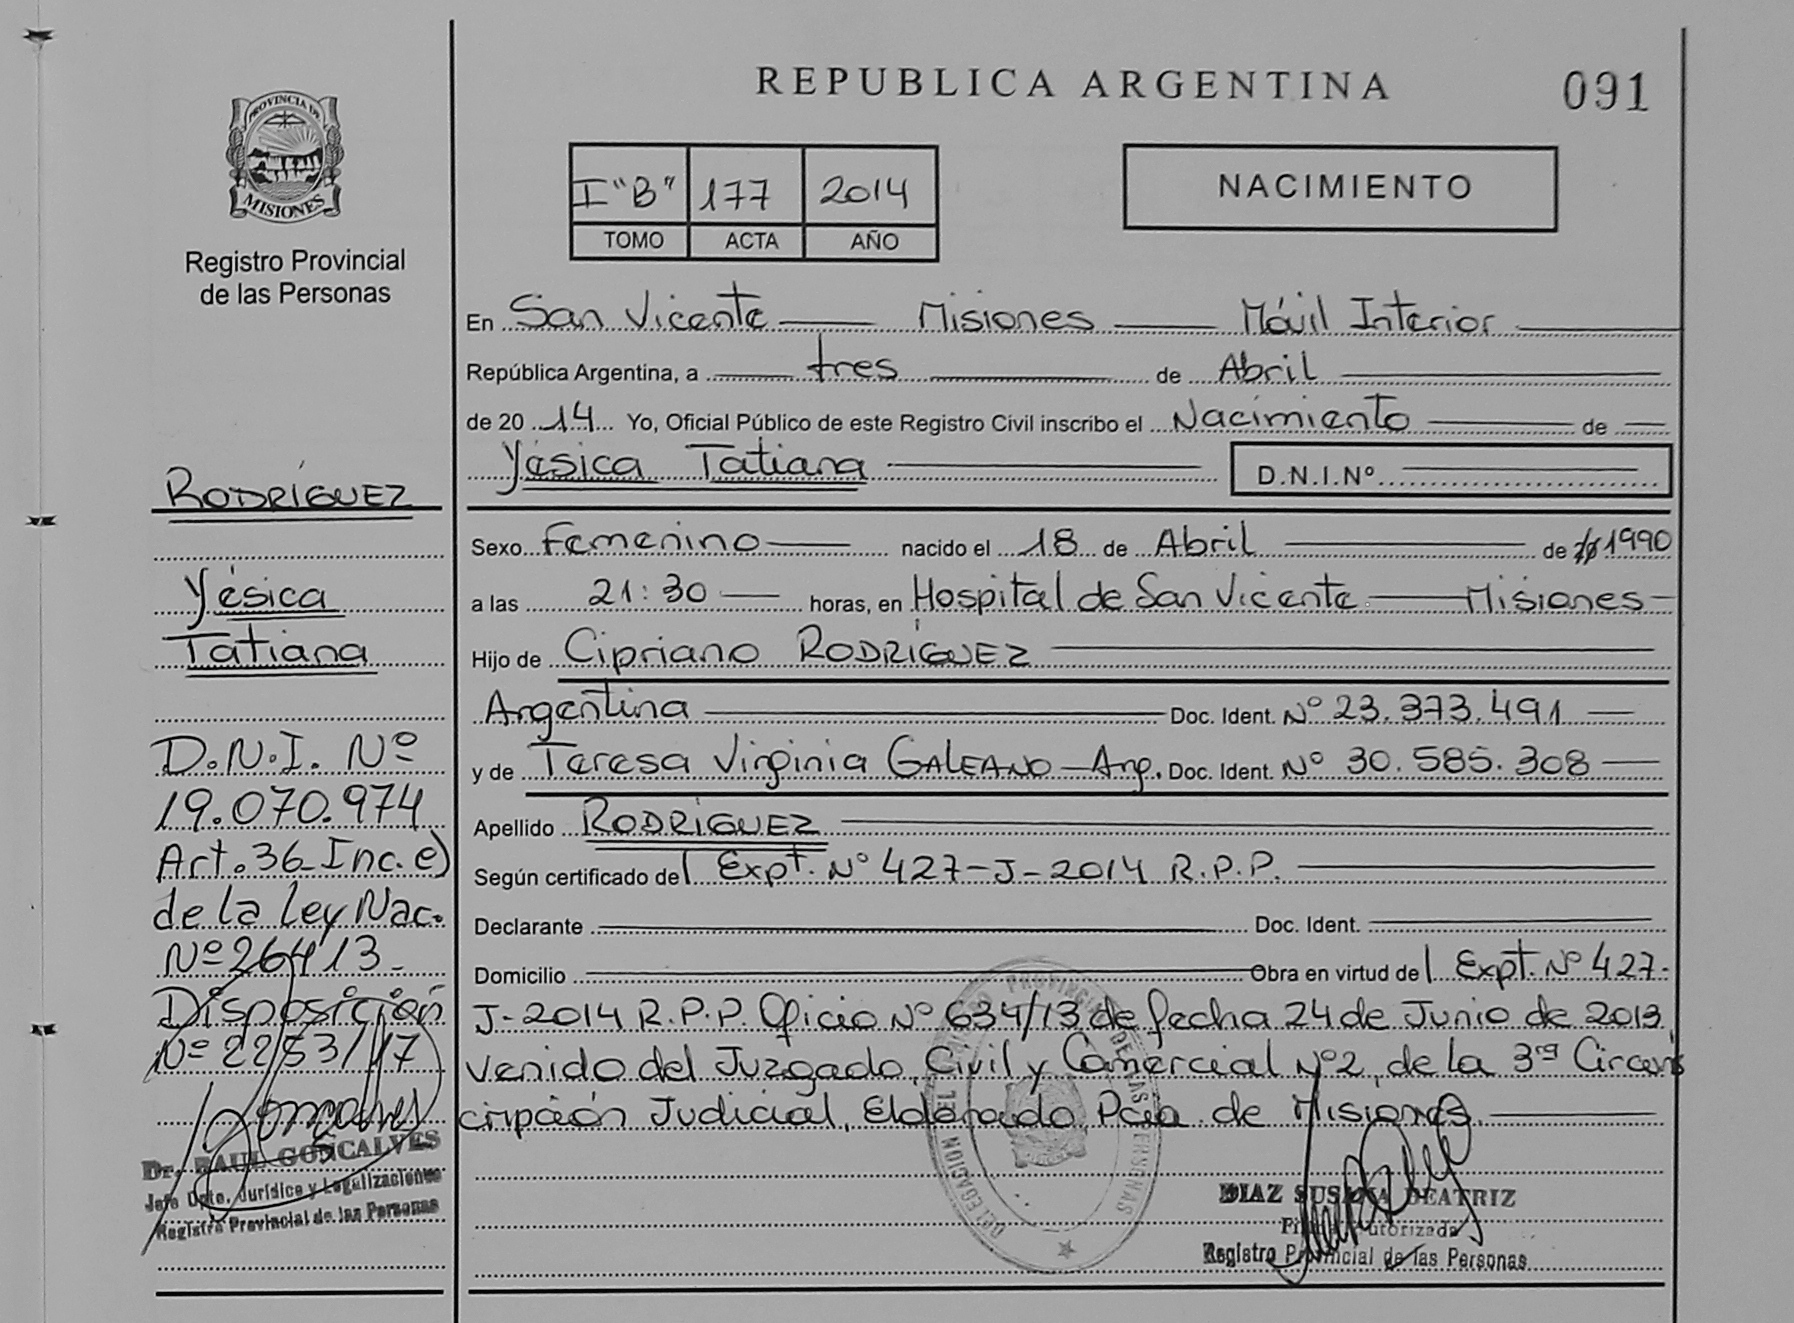 REPUBLICA ARGENTINA
091
PROVINCIA DE
MISIONES
Registro Provincial
de las Personas
I "B" 177 2014
TOMO ACTA AÑO
NACIMIENTO
En San Vicente Misiones Móvil Interior
República Argentina, a tres de Abril
de 20 14 Yo, Oficial Público de este Registro Civil inscribo el Nacimiento de
Yésica Tatiana D.N.I.Nº
Sexo Femenino nacido el 18 de Abril de 1990
a las 21:30 horas, en Hospital de San Vicente Misiones
Hijo de Cipriano RODRÍGUEZ
Argentina Doc. Ident. Nº 23.373.491
y de Teresa Virginia GALEANO - Arg. Doc. Ident. Nº 30.585.308
Apellido RODRÍGUEZ
Según certificado del Expt. Nº 427-J-2014 R.P.P.
Declarante Doc. Ident.
Domicilio Obra en virtud del Expt. Nº 427-
J-2014 R.P.P. Oficio Nº 634/13 de fecha 24 de Junio de 2013,
venido del Juzgado, Civil y Comercial Nº2, de la 3ra Circuns
cripción Judicial, Eldorado, Pcia. de Misiones.
RODRÍGUEZ
Yésica
Tatiana
D.N.I. Nº
19.070.974
Art. 36 Inc. e)
de la Ley Nac.
Nº 26413-
Disposición
Nº 2253/17
Dr. RAUL GONCALVES
Jefe Dpto. Jurídico y Legalizaciones
Registro Provincial de las Personas
DIAZ SUSANA BEATRIZ
Firma Autorizada
Registro Provincial de las Personas